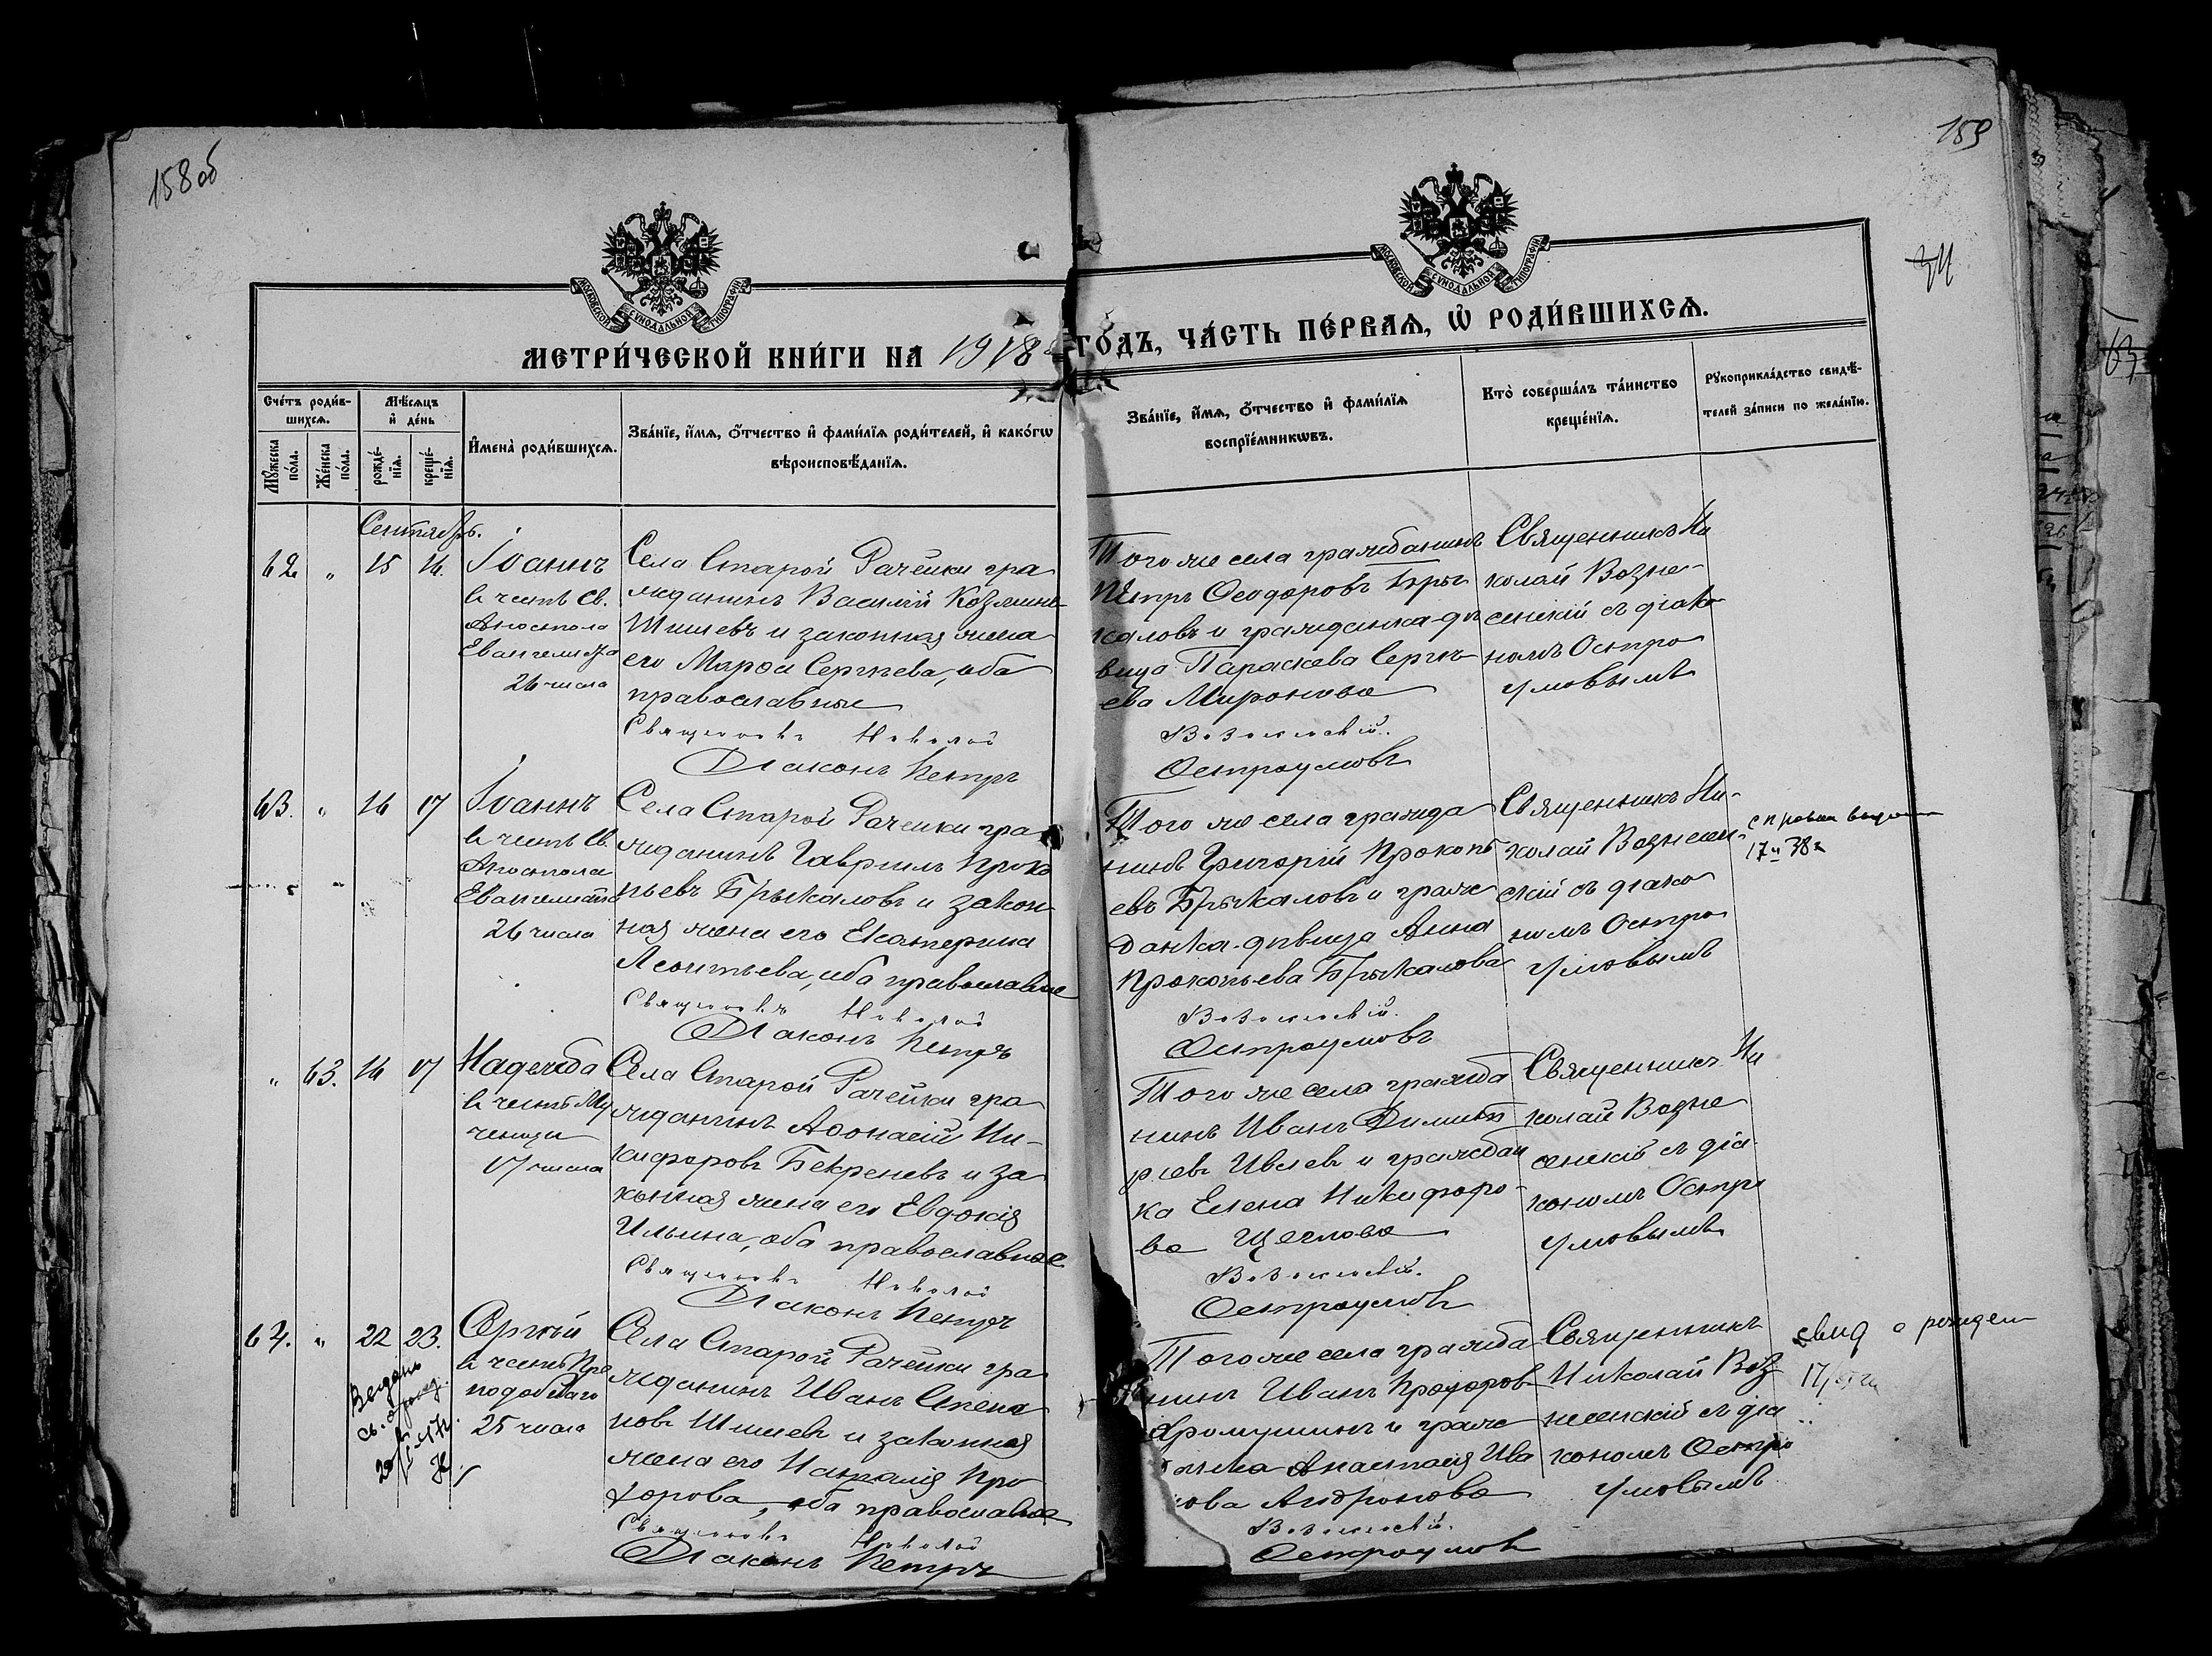 158 об
159
34
МОСКОВСКОЙ СѴНОДАЛЬНОЙ ТИПОГРАФІИ
МОСКОВСКОЙ СѴНОДАЛЬНОЙ ТИПОГРАФІИ
МЕТРИ́ЧЕСКОЙ КНИ́ГИ НА 1918 ГО́ДЪ, ЧА́СТЬ ПЕ́РВАѦ, Ѽ РОДИ́ВШИХСѦ.
Сче́тъ роди́в-
шихсѧ.
Мѣ́сѧцъ
и҆ де́нь
Мꙋ́жеска
по́ла.
Же́нска
по́ла.
рожде́-
нїѧ.
креще́-
нїѧ.
И҆мена̀ роди́вшихсѧ.
Зва́нїе, и҆́мѧ, ѻ҆́тчество и҆ фами́лїѧ роди́телей, и҆ како́гѡ
вѣроисповѣ́данїѧ.
Зва́нїе, и҆́мѧ, ѻ҆́тчество и҆ фами́лїѧ
воспрїе́мникѡвъ.
Кто̀ соверша́лъ та́инство
креще́нїѧ.
Рꙋкоприкла́дство свидѣ́-
телей за́писи по жела́нїю.
Сентябрь.
62 " 15 16.
Іоаннъ
въ честь Св.
Апостола
Евангелиста
26 числа
Села Старой Рачейки гра
жданинъ Василій Козминъ
Шишевъ и законная жена
его Марѳа Сергѣева, оба
православные
Священникъ Николай
Діаконъ Петръ
Того же села гражданинъ
Петръ Ѳеодоровъ Бры
каловъ и гражданка-дѣ
вица Параскева Сергѣ
ева Миронова
Вознесенскій.
Остроумовъ
Священникъ Ни
колай Возне-
сенскій съ діако
номъ Остро
умовымъ
63. " 16 17
Іоаннъ
въ честь Св.
Апостола
Евангелиста
26 числа
Села Старой Рачейки гра
жданинъ Гавріилъ Проко
пьевъ Брыкаловъ и закон
ная жена его Екатерина
Леонтьева, оба православные
Священникъ Николай
Діаконъ Петръ
Того же села гражда
нинъ Григорій Прокопь
евъ Брыкаловъ и граж
данка-дѣвица Анна
Прокопьева Брыкалова
Вознесенскій.
Остроумовъ
Священникъ Ни-
колай Вознесен-
скій съ діако
номъ Остро
умовымъ
справка
" 63. 16 17
Надежда
въ честь Му
ченицы
17 числа
Села Старой Рачейки гра
жданинъ Аѳонасій Ни-
кифоровъ Бекреневъ и за
конная жена его Евдокія
Ильина, оба православные
Священникъ Николай
Діаконъ Петръ
Того же села гражда
нинъ Иванъ Димит
ріевъ Ивлевъ и граждан
ка Елена Никифоро-
ва Щеглова
Вознесенскій.
Остроумовъ
Священникъ Ни
колай Возне
сенскій съ діа
кономъ Остро
умовымъ
64. " 22 23.
Сергѣй
въ честь Пре
подобнаго
25 числа
Села Старой Рачейки гра
жданинъ Иванъ Степа
новъ Шишевъ и законная
жена его Наталія Про
хорова, оба православные
Священникъ Николай
Діаконъ Петръ
Того же села гражда
нинъ Иванъ Прохоровъ
и граж
Анастасія Ива
нова Андронова
Вознесенскій.
Остроумовъ
Священникъ
Николай Воз
несенскій съ діа
кономъ Остро
умовымъ
свид о рожден